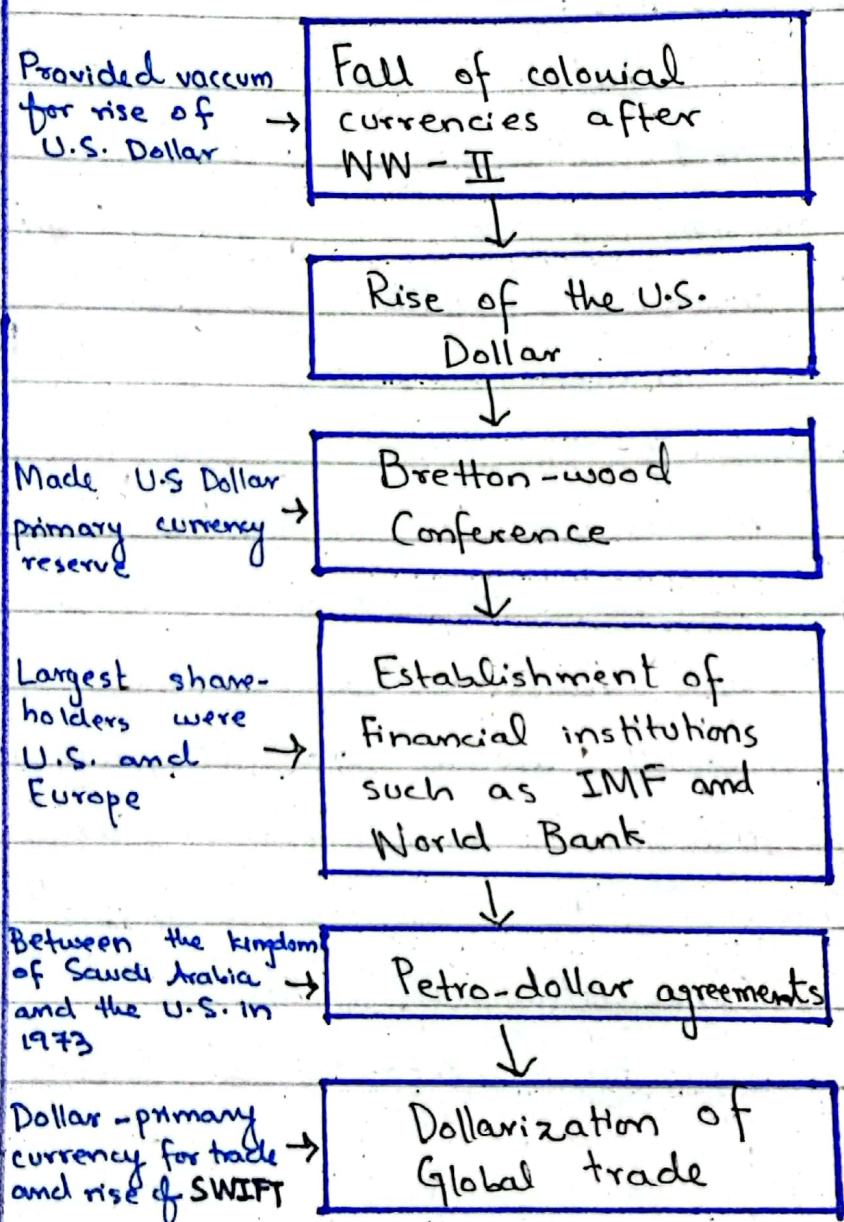 Provided vaccum
for rise of →
U.S. Dollar
Fall of colonial
currencies after
WW - II
Rise of the U.S.
Dollar
Made U.S Dollar
primary currency →
reserve
Bretton-wood
Conference
Largest share-
holders were
U.S. and →
Europe
Establishment of
financial institutions
such as IMF and
World Bank
Between the kingdom
of Saudi Arabia →
and the U.S. in
1973
Petro-dollar agreements
Dollar - primary
currency for trade →
and rise of SWIFT
Dollarization of
Global trade